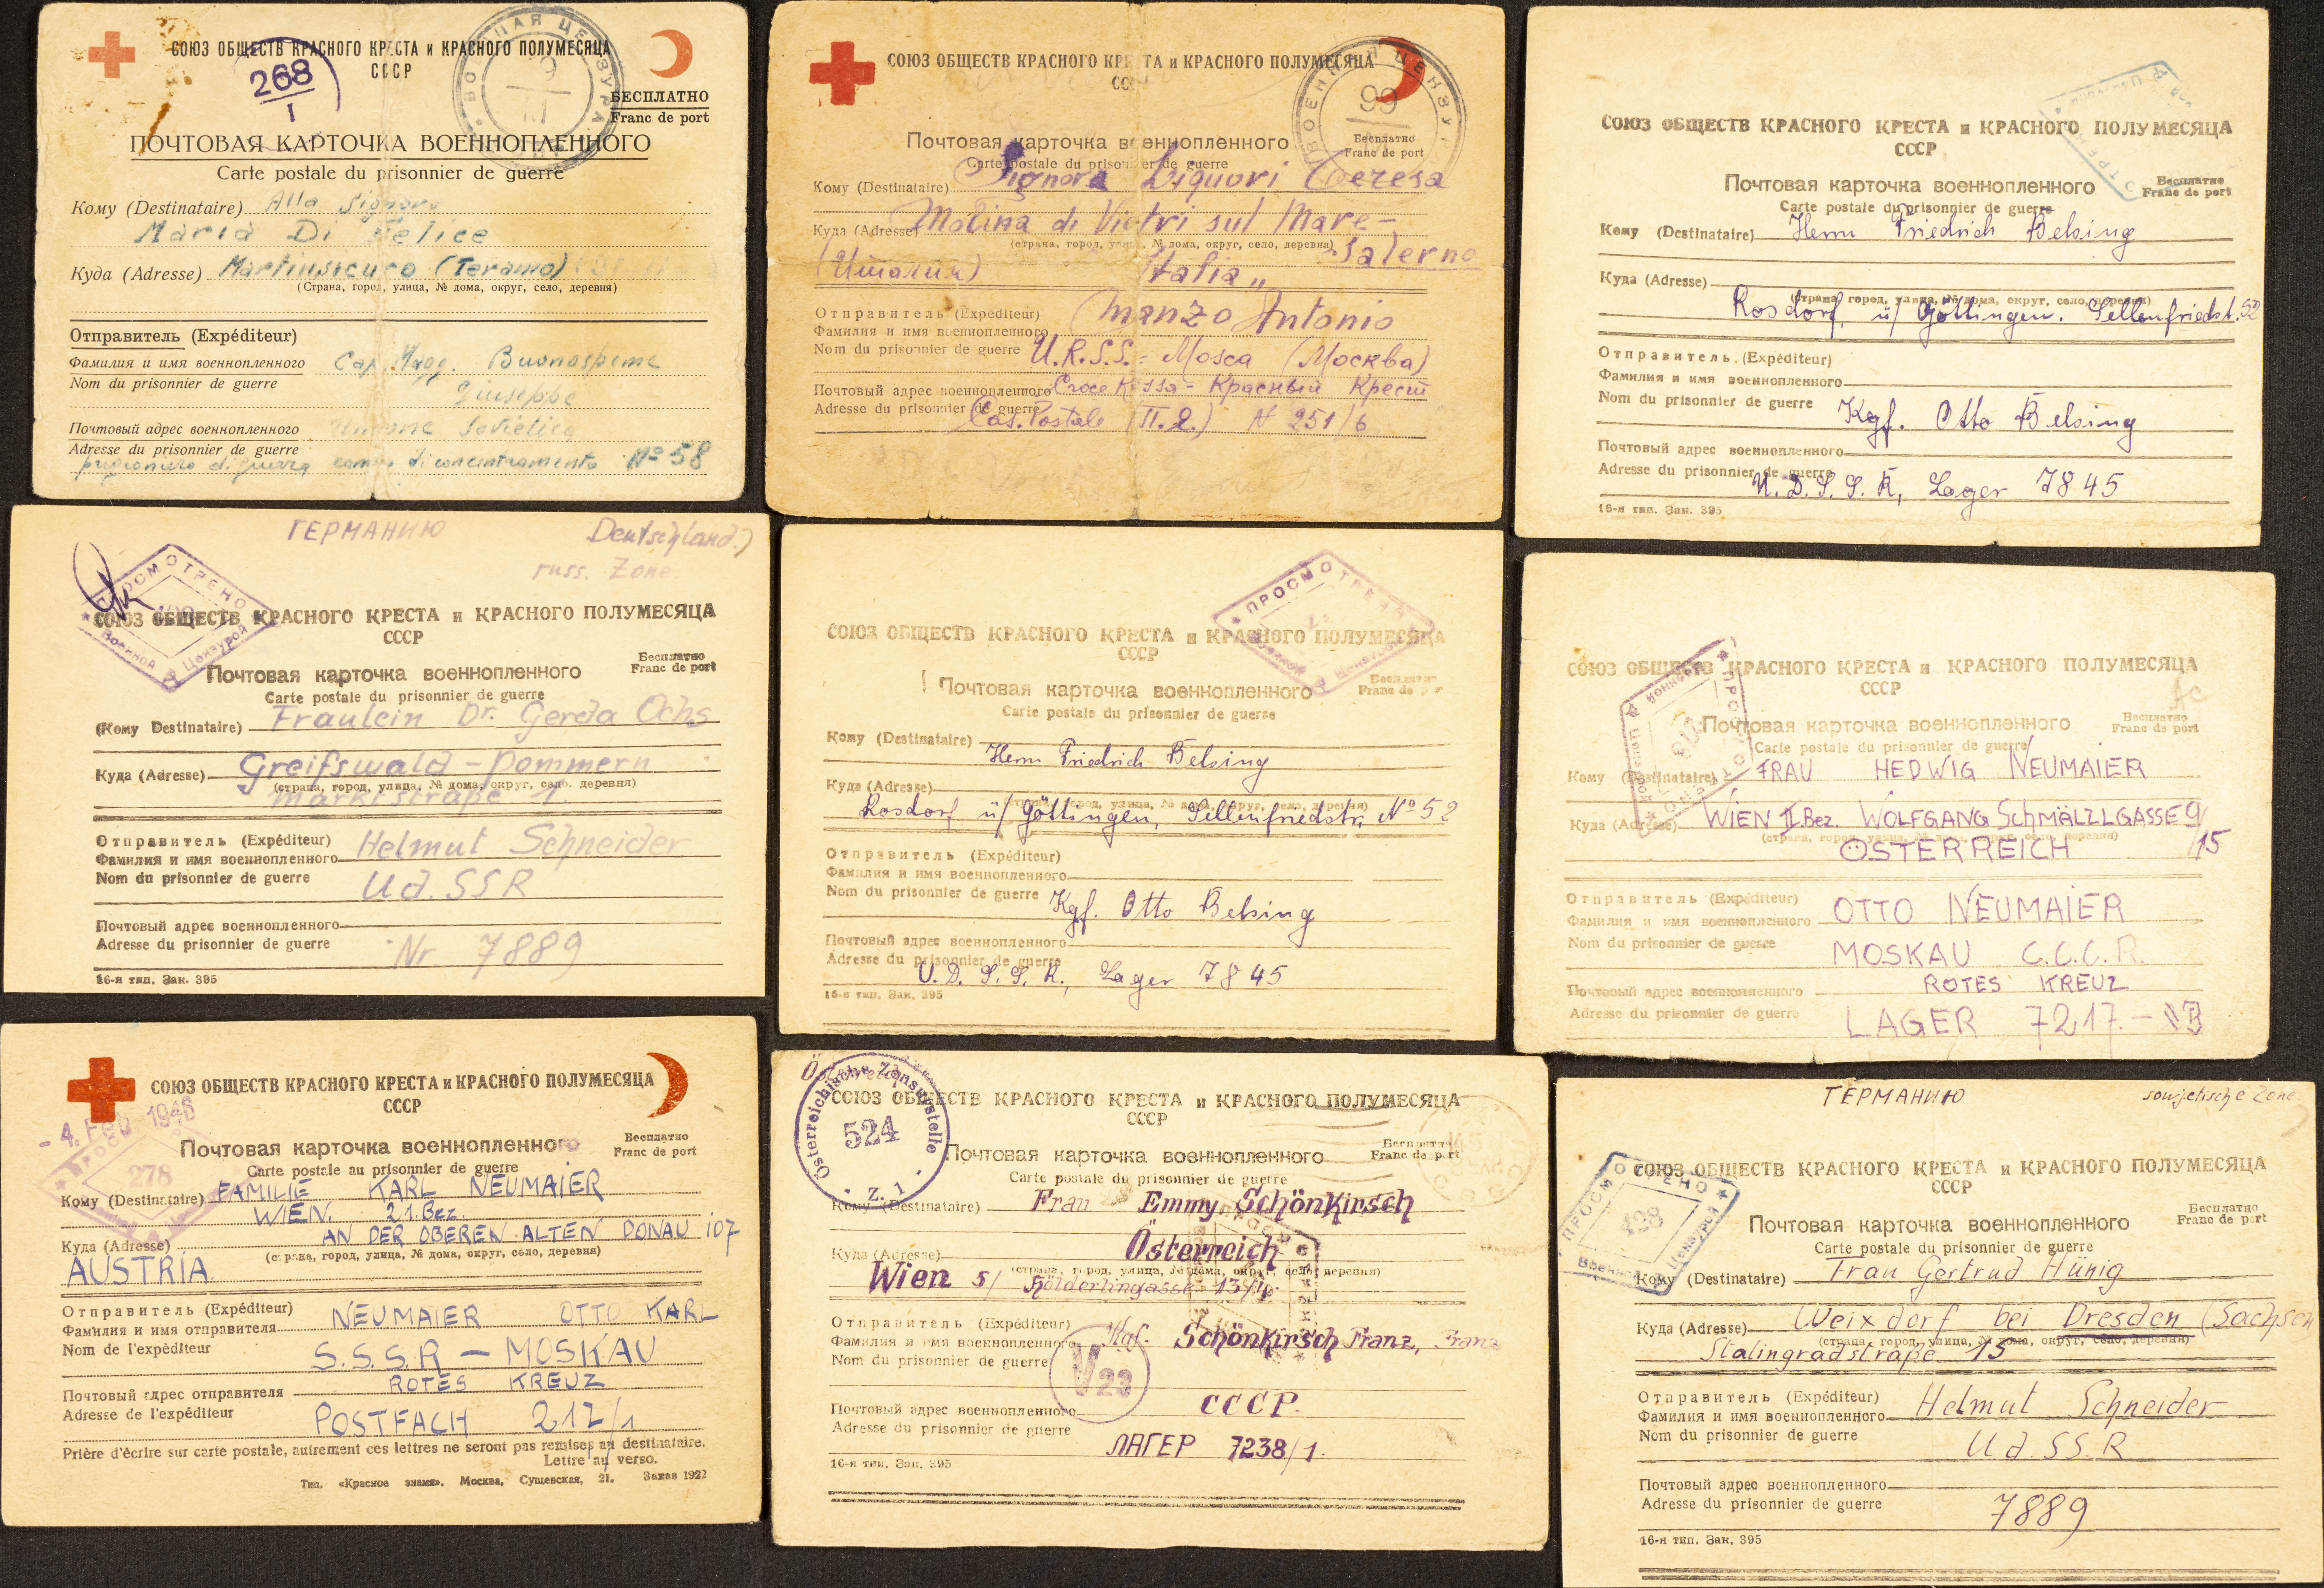 СОЮЗ ОБЩЕСТВ КРАСНОГО КРЕСТА и КРАСНОГО ПОЛУМЕСЯЦА
СССР
268
I
ВОЕННАЯ ЦЕНЗУРА
БЕСПЛАТНО
Franc de port
ПОЧТОВАЯ КАРТОЧКА ВОЕННОПЛЕННОГО
Carte postale du prisonnier de guerre
Кому (Destinataire) Alla Signora
Maria Di Felice
Куда (Adresse) Martinsicuro (Teramo)
(Страна, город, улица, № дома, округ, село, деревня)
Отправитель (Expéditeur)
Фамилия и имя военнопленного Cap. Magg. Buonaspeme
Nom du prisonnier de guerre Giuseppe
Почтовый адрес военнопленного Unione Sovietica
Adresse du prisonnier de guerre
prigioniero di guerra campo di concentramento Nº 58
СОЮЗ ОБЩЕСТВ КРАСНОГО КРЕСТА и КРАСНОГО ПОЛУМЕСЯЦА
СССР
ВОЕННАЯ ЦЕНЗУРА
99
Почтовая карточка военнопленного
Бесплатно
Carte postale du prisonnier de guerre
Franc de port
Кому (Destinataire) Signora Liquori Teresa
Куда (Adresse) Molina di Vietri sul Mare -
(страна, город, улица, № дома, округ, село, деревня) Salerno
(Италия) Italia „
Отправитель (Expéditeur) Manzo Antonio
Фамилия и имя военнопленного
Nom du prisonnier de guerre U.R.S.S. = Mosca (Москва)
Почтовый адрес военнопленного Croce Rossa - Красный Крест
Adresse du prisonnier de guerre Cas. Postale (П.Я.) N 251/6
СОЮЗ ОБЩЕСТВ КРАСНОГО КРЕСТА и КРАСНОГО ПОЛУМЕСЯЦА
СССР
Почтовая карточка военнопленного
Бесплатно
Franc de port
Carte postale du prisonnier de guerre
Кому (Destinataire) Herrn Friedrich Belsing
Куда (Adresse)
(страна, город, улица, № дома, округ, село, деревня)
Rosdorf ü/ Göttingen. Sellenfriedst. 52
Отправитель (Expéditeur)
Фамилия и имя военнопленного
Nom du prisonnier de guerre Kgf. Otto Belsing
Почтовый адрес военнопленного
Adresse du prisonnier de guerre U.D.S.S.R, Lager 7845
16-я тип. Зак. 395
ГЕРМАНИЮ Deutschland)
russ. Zone
ПРОСМОТРЕНО Военной Цензурой
СОЮЗ ОБЩЕСТВ КРАСНОГО КРЕСТА и КРАСНОГО ПОЛУМЕСЯЦА
СССР
Бесплатно
Franc de port
Почтовая карточка военнопленного
Carte postale du prisonnier de guerre
(Кому Destinataire) Fraulein Dr. Gerda Ochs
Куда (Adresse) Greifswald - Pommern
(страна, город, улица, № дома, округ, село. деревня)
Marktstraße 1.
Отправитель (Expéditeur)
Фамилия и имя военнопленного Helmut Schneider
Nom du prisonnier de guerre U.d.SSR
Почтовый адрес военнопленного
Adresse du prisonnier de guerre Nr. 7889
16-я тип. Зак. 395
ПРОСМОТРЕНО Военной Цензурой
СОЮЗ ОБЩЕСТВ КРАСНОГО КРЕСТА и КРАСНОГО ПОЛУМЕСЯЦА
СССР
Почтовая карточка военнопленного
Бесплатно
Franc de port
Carte postale du prisonnier de guerre
Кому (Destinataire) Herrn Friedrich Belsing
Куда (Adresse)
(страна, город, улица, № дома, округ, село, деревня)
Rosdorf ü/ Göttingen, Sellenfriedstr. Nº 52
Отправитель (Expéditeur)
Фамилия и имя военнопленного
Nom du prisonnier de guerre Kgf. Otto Belsing
Почтовый адрес военнопленного
Adresse du prisonnier de guerre
U.D.S.S.R., Lager 7845
16-я тип. Зак. 395
СОЮЗ ОБЩЕСТВ КРАСНОГО КРЕСТА и КРАСНОГО ПОЛУМЕСЯЦА
СССР
Почтовая карточка военнопленного
Бесплатно
Franc de port
Carte postale du prisonnier de guerre
Кому (Destinataire) FRAU HEDWIG NEUMAIER
Куда (Adresse) WIEN II.Bez. WOLFGANG SCHMÄLZLGASSE 9/15
(страна, город, улица, № дома, округ, село, деревня)
ÖSTERREICH
Отправитель (Expéditeur)
Фамилия и имя военнопленного OTTO NEUMAIER
Nom du prisonnier de guerre MOSKAU C.C.C.R.
ROTES KREUZ
Почтовый адрес военнопленного
Adresse du prisonnier de guerre LAGER 7217.-
СОЮЗ ОБЩЕСТВ КРАСНОГО КРЕСТА и КРАСНОГО ПОЛУМЕСЯЦА
СССР
- 4. Feb. 1946
278
Почтовая карточка военнопленного
Бесплатно
Franc de port
Carte postale au prisonnier de guerre
Кому (Destinataire) FAMILIE KARL NEUMAIER
WIEN. 21.Bez.
Куда (Adresse) AN DER OBEREN ALTEN DONAU 107
(страна, город, улица, № дома, округ, село, деревня)
AUSTRIA
Отправитель (Expéditeur)
Фамилия и имя отправителя NEUMAIER OTTO KARL
Nom de l'expéditeur S.S.S.R - MOSKAU
ROTES KREUZ
Почтовый адрес отправителя
Adresse de l'expéditeur POSTFACH 217/1
Prière d'écrire sur carte postale, autrement ces lettres ne seront pas remises au destinataire.
Lettre au verso.
Тип. «Красное знамя». Москва, Сущевская, 21. Заказ 1922
Österreichische Zensurstelle
524
Z. 1
СОЮЗ ОБЩЕСТВ КРАСНОГО КРЕСТА и КРАСНОГО ПОЛУМЕСЯЦА
СССР
Почтовая карточка военнопленного
Бесплатно
Franc de port
Carte postale du prisonnier de guerre
Кому (Destinataire) Frau Emmy Schönkirsch
Куда (Adresse) Österreich
(страна, город, улица, № дома, округ, село, деревня)
Wien 5/ Hölderlingasse 13/4.
Отправитель (Expéditeur)
Фамилия и имя военнопленного Kgf. Schönkirsch Franz, Franz
Nom du prisonnier de guerre
V 23
Почтовый адрес военнопленного СССР.
Adresse du prisonnier de guerre
ЛАГЕР 7238/1.
16-я тип. Зак. 395
ГЕРМАНИЮ sowjetische Zone
ПРОСМОТРЕНО Военной Цензурой
СОЮЗ ОБЩЕСТВ КРАСНОГО КРЕСТА и КРАСНОГО ПОЛУМЕСЯЦА
СССР
Почтовая карточка военнопленного
Бесплатно
Franc de port
Carte postale du prisonnier de guerre
Кому (Destinataire) Frau Gertrud Hünig
Куда (Adresse) Weixdorf bei Dresden (Sachsen
(страна, город, улица, № дома, округ, село, деревня)
Stalingradstraße 15
Отправитель (Expéditeur)
Фамилия и имя военнопленного Helmut Schneider
Nom du prisonnier de guerre U.d.SS.R
Почтовый адрес военнопленного
Adresse du prisonnier de guerre 7889
16-я тип. Зак. 395